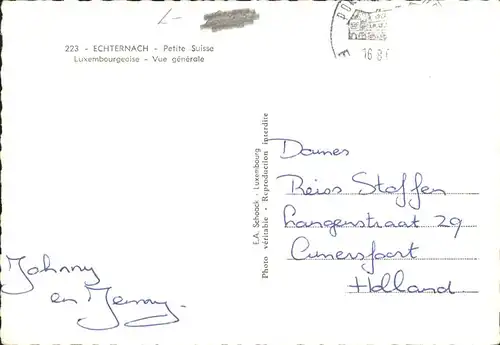 223 - ECHTERNACH - Petite Suisse
Luxembourgeoise - Vue générale
E.A. Schaack - Luxembourg
Photo véritable - Reproduction interdite
Dames
Reios Stoffen
Langenstraat 29
Amersfoort
Holland
Johnny
en Jenny.